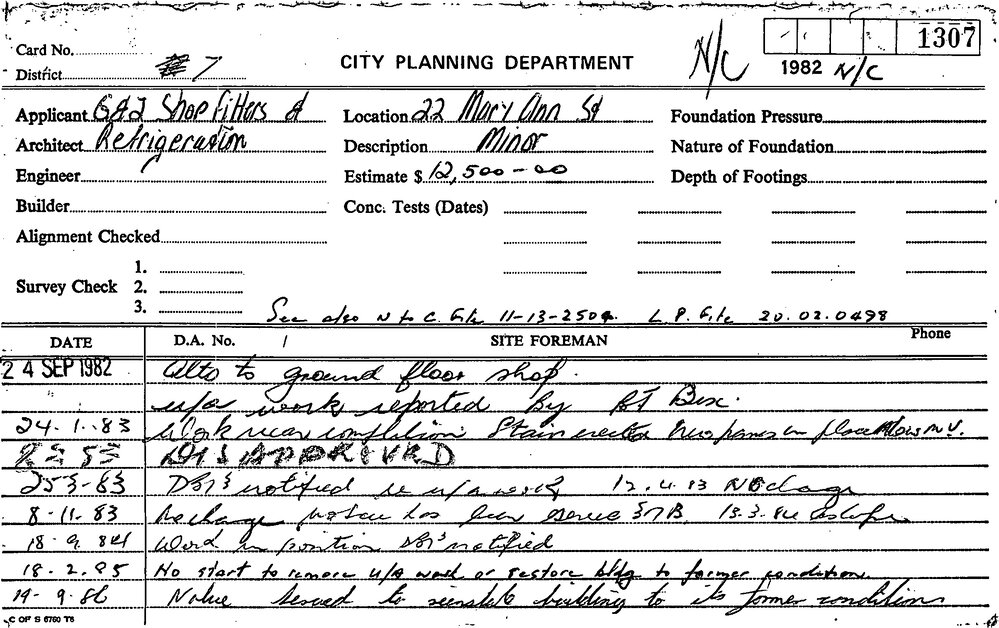 1307
Card No.
District # 7
CITY PLANNING DEPARTMENT
N/C
1982 N/C
Applicant G & J Shop Fitters &
Location 22 Mary Ann St
Foundation Pressure
Architect Refrigeration
Description Minor
Nature of Foundation
Engineer
Estimate $ 12,500-00
Depth of Footings
Builder
Conc. Tests (Dates)
Alignment Checked
Survey Check
1.
2.
3.
See also N to C. File 11-13-2509. L.P. File 20.02.0498
DATE D.A. No. / SITE FOREMAN Phone
24 SEP 1982 Alts to ground floor shop.
u/a work reported By
24.1.83 Work near completion Stair erected in place
DISAPPROVED
25-3-83 DBS notified re u/a work 12.4.83 No change
8-11.83 No change Notice has been served
18.9.84 Work in position DBS notified
18.2.85 No start to remove u/a work or restore bldg to former condition
19.9.86 Notice served to reinstate building to its former condition
C OF S 6760 T6